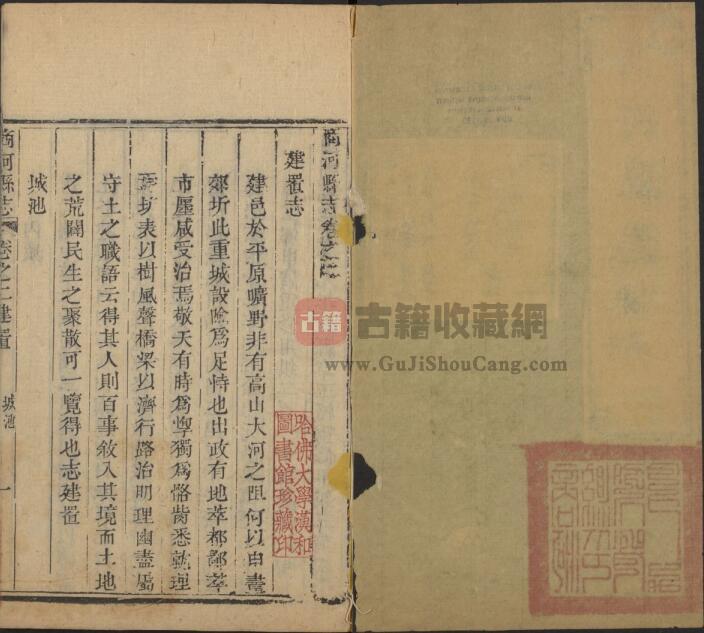 商河縣志卷之二
建置志
建邑於平原曠野非有高山大河之阻何以申畫
郊圻此重城設險爲足恃也出政有地萃都鄙萃
市廛咸受治焉敬天有時爲惸獨爲
坊表以樹風聲橋梁以濟行路治明理幽盡屬
守土之職語云得其人則百事敘入其境而土地
之荒闢民生之聚散可一覽得也志建置
城池
商河縣志
卷之二建置
城池
一
哈佛大學漢和
圖書館珍藏印
古籍
古籍收藏網
www.GuJiShouCang.com